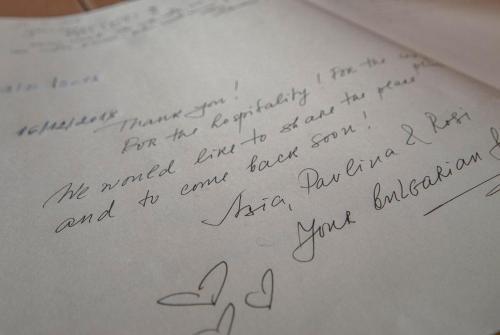 16/12/2018 Thank you!
For the hospitality! For the
We would like to share the place
and to come back soon!
Asia, Paulina & Rosi
Your BULGARIAN